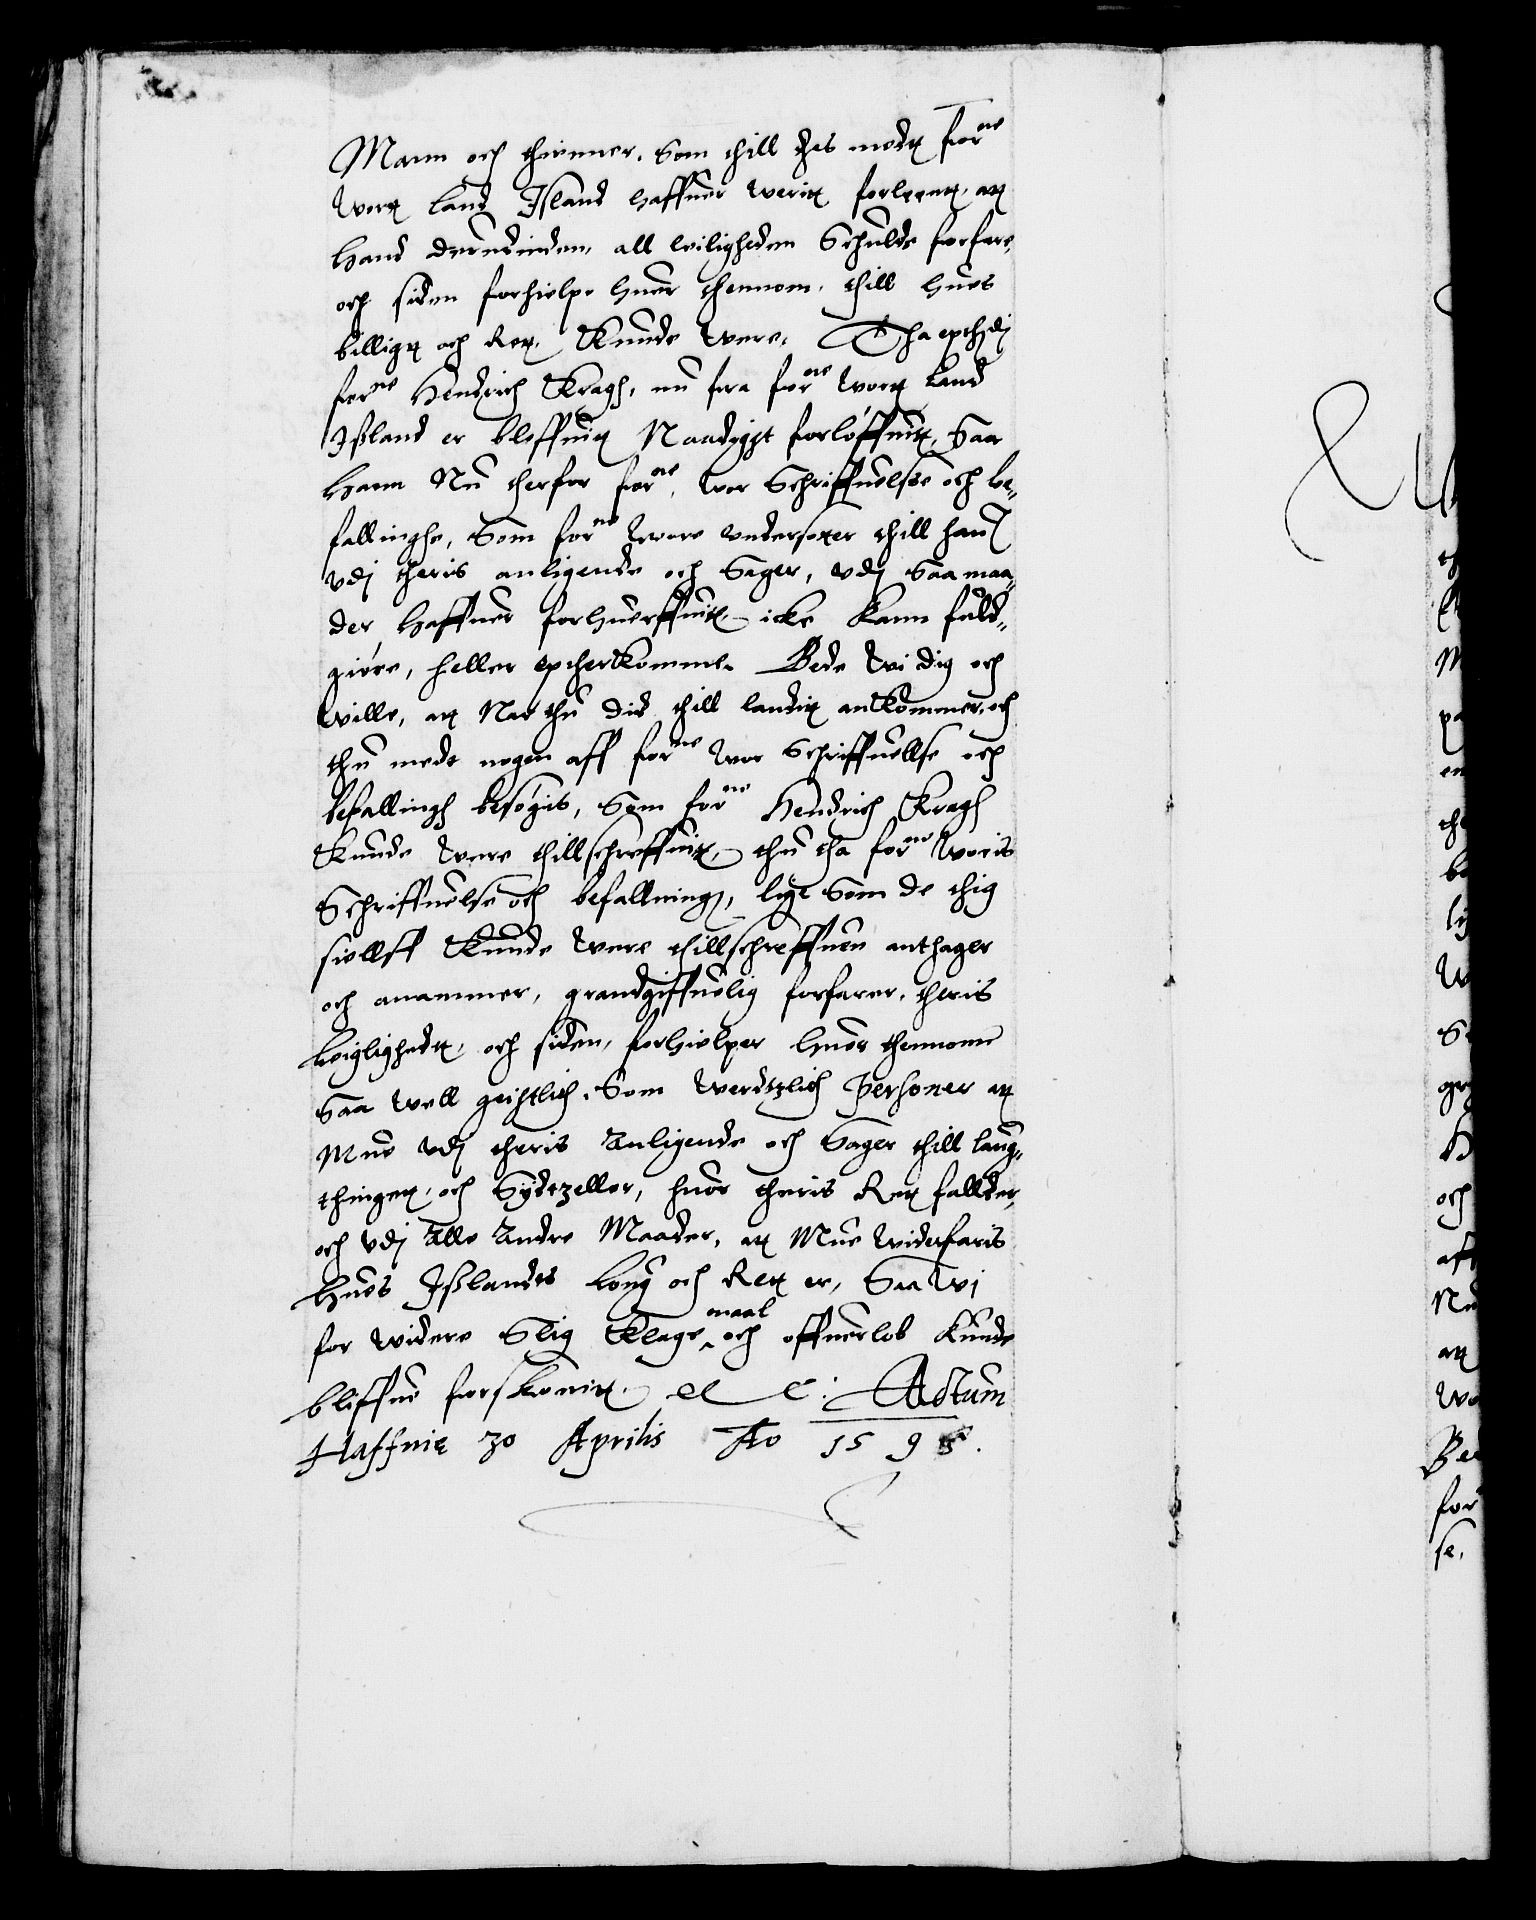 Mann och thienner, som thill thes medt for^ne
wort land Island haffuer werit forleent, at
hand derudinden, all leiligheden schulde forfare,
och siden forhielpe huer thennom, thill hues
billigt och Ret kunde were, Tha epthj di
for^ne Hendrich Kragh, nu fra for^ne wort land
Ißland er bleffuit Naadigst forløffuit, Saa
hann Nu therfor for^ne, wor Schriffuelsse och be„
fallinghe, som for^ne wore undersotter thill hans
udj theris anligende och Sager, udj saa maa„
der haffuer forhuerffuit, icke kann fuld„
giøre, heller epcherkomme. Bede wi dig och
wille, at Nar thu did thill landit ankommer, och
thu mede nogen aff for^ne wor Schriffuellse och
befallingh besøgis, som for^ne Hendrich Kragh
kunde were thillschreffuit, thu tha for^ne woris
Schriffuelse och befallning, ligt som de thig
siellff kunde were thillschreffuen anthager
och anammer, grandgiffuelig forfarer, theris
leigligheder, och siden, forhielper huer thennom
saa well geistlich, som werdtzlich Personer at
Mue udj theris anligende och Sager thill laug„
thinget, och Sydtzeller, huor theris Ret fallder,
och udj alle andre Maader, at Mue widerfaris
hues Ißlandts loug och Ret er, Saa wj
for widere slig klagemaal och offuerlob kunde
bliffue forskonit. et c: Actum
Haffnię 30 Aprilis Ao 1595.